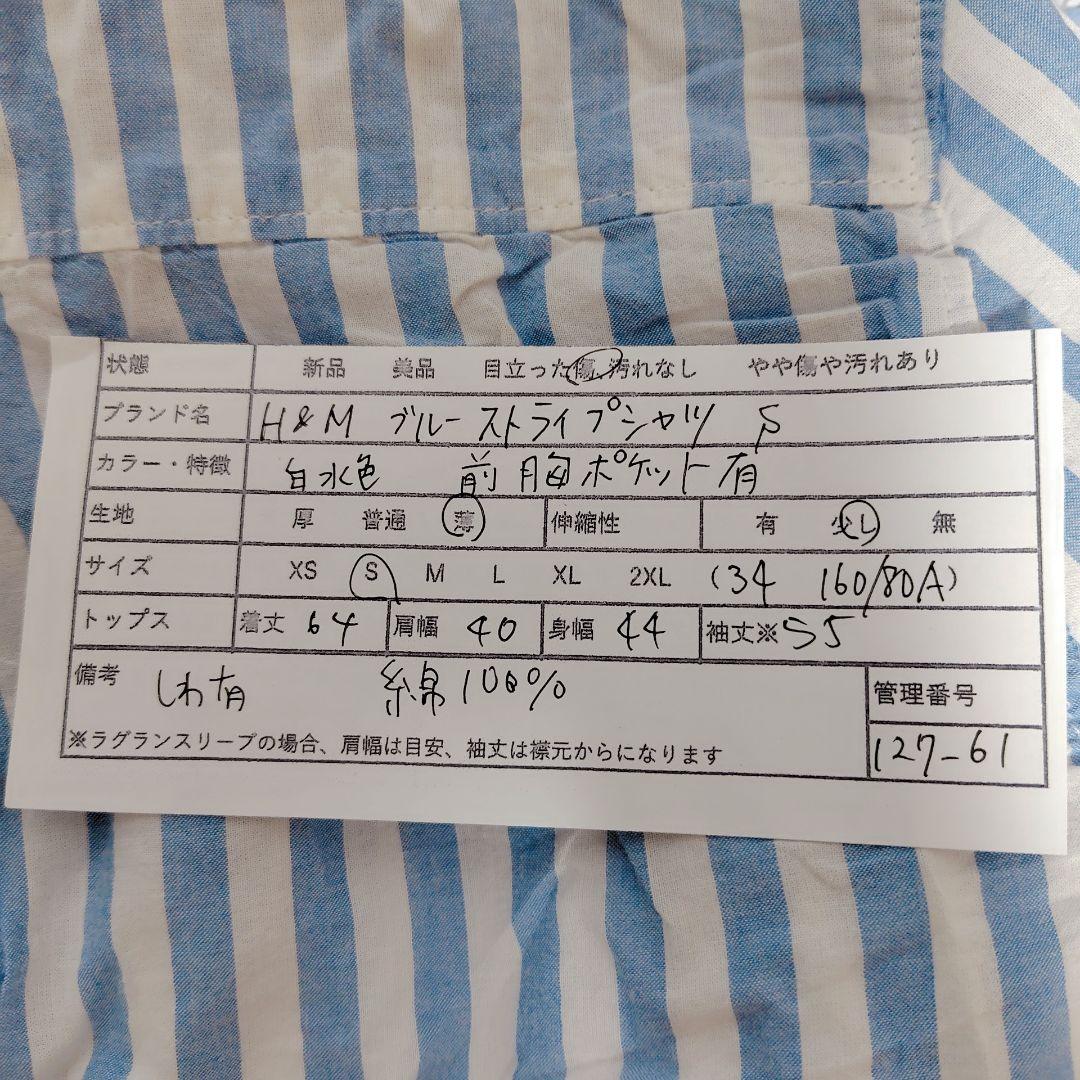 状態 新品 美品 目立った傷、汚れなし やや傷や汚れあり
ブランド名 H&M ブルーストライプシャツ S
カラー・特徴 白水色 前胸ポケット有
生地 厚 普通 薄 伸縮性 有 少し 無
サイズ XS S M L XL 2XL (34 160/80A)
トップス 着丈 64 肩幅 40 身幅 44 袖丈※ 55
備考 しわ有 綿100% 管理番号
※ラグランスリーブの場合、肩幅は目安、袖丈は襟元からになります 127-61